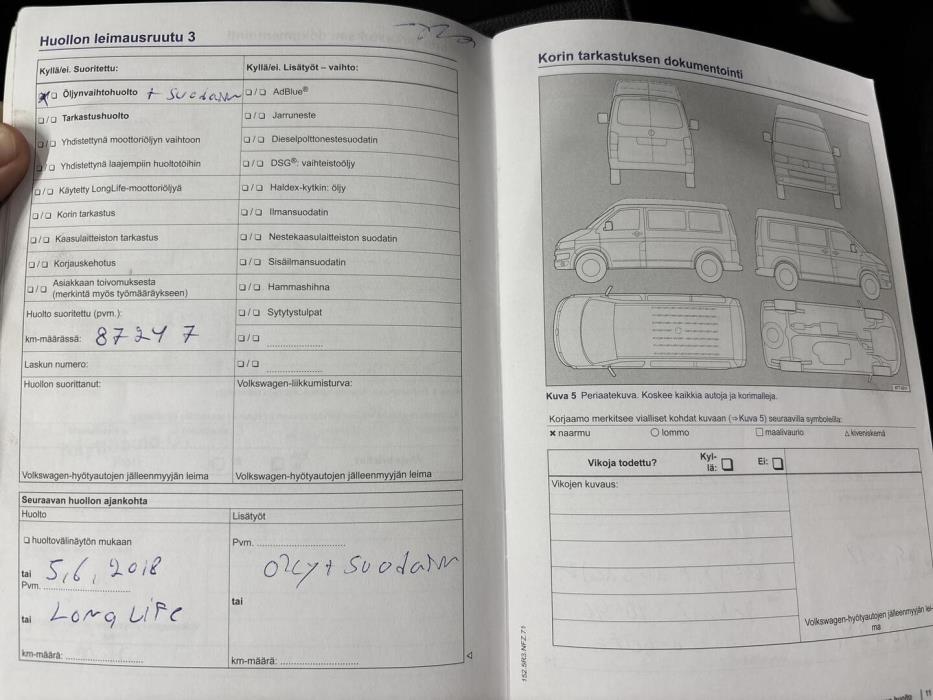 Huollon leimausruutu 3
Kyllä/ei. Suoritettu:
Öljynvaihtohuolto + suodatin
❏/❏ Tarkastushuolto
❏/❏ Yhdistettynä moottoriöljyn vaihtoon
❏/❏ Yhdistettynä laajempiin huoltotöihin
❏/❏ Käytetty LongLife-moottoriöljyä
❏/❏ Korin tarkastus
❏/❏ Kaasulaitteiston tarkastus
❏/❏ Korjauskehotus
❏/❏ Asiakkaan toivomuksesta
(merkintä myös työmääräykseen)
Huolto suoritettu (pvm.):
km-määrässä: 87247
Laskun numero:
Huollon suorittanut:
Volkswagen-hyötyautojen jälleenmyyjän leima
Kyllä/ei. Lisätyöt – vaihto:
❏/❏ AdBlue®
❏/❏ Jarruneste
❏/❏ Dieselpolttonestesuodatin
❏/❏ DSG®: vaihteistoöljy
❏/❏ Haldex-kytkin: öljy
❏/❏ Ilmansuodatin
❏/❏ Nestekaasulaitteiston suodatin
❏/❏ Sisäilmansuodatin
❏/❏ Hammashihna
❏/❏ Sytytystulpat
❏/❏
❏/❏
Volkswagen-liikkumisturva:
Volkswagen-hyötyautojen jälleenmyyjän leima
Seuraavan huollon ajankohta
Huolto
❏ huoltovälinäytön mukaan
tai 5,6, 2018
Pvm.
tai Long Life
km-määrä:
Lisätyöt
Pvm.
öljy + suodatin
tai
km-määrä:
Korin tarkastuksen dokumentointi
Kuva 5 Periaatekuva. Koskee kaikkia autoja ja korimalleja.
Korjaamo merkitsee vialliset kohdat kuvaan (⇒Kuva 5) seuraavilla symboleilla:
✖ naarmu ○ lommo □ maalivaurio △ kiveniskemä
Vikoja todettu? Kyl-
lä: ❏ Ei: ❏
Vikojen kuvaus:
Volkswagen-hyötyautojen jälleenmyyjän lei-
ma
152.5R3.NFZ.71
huolto | 11